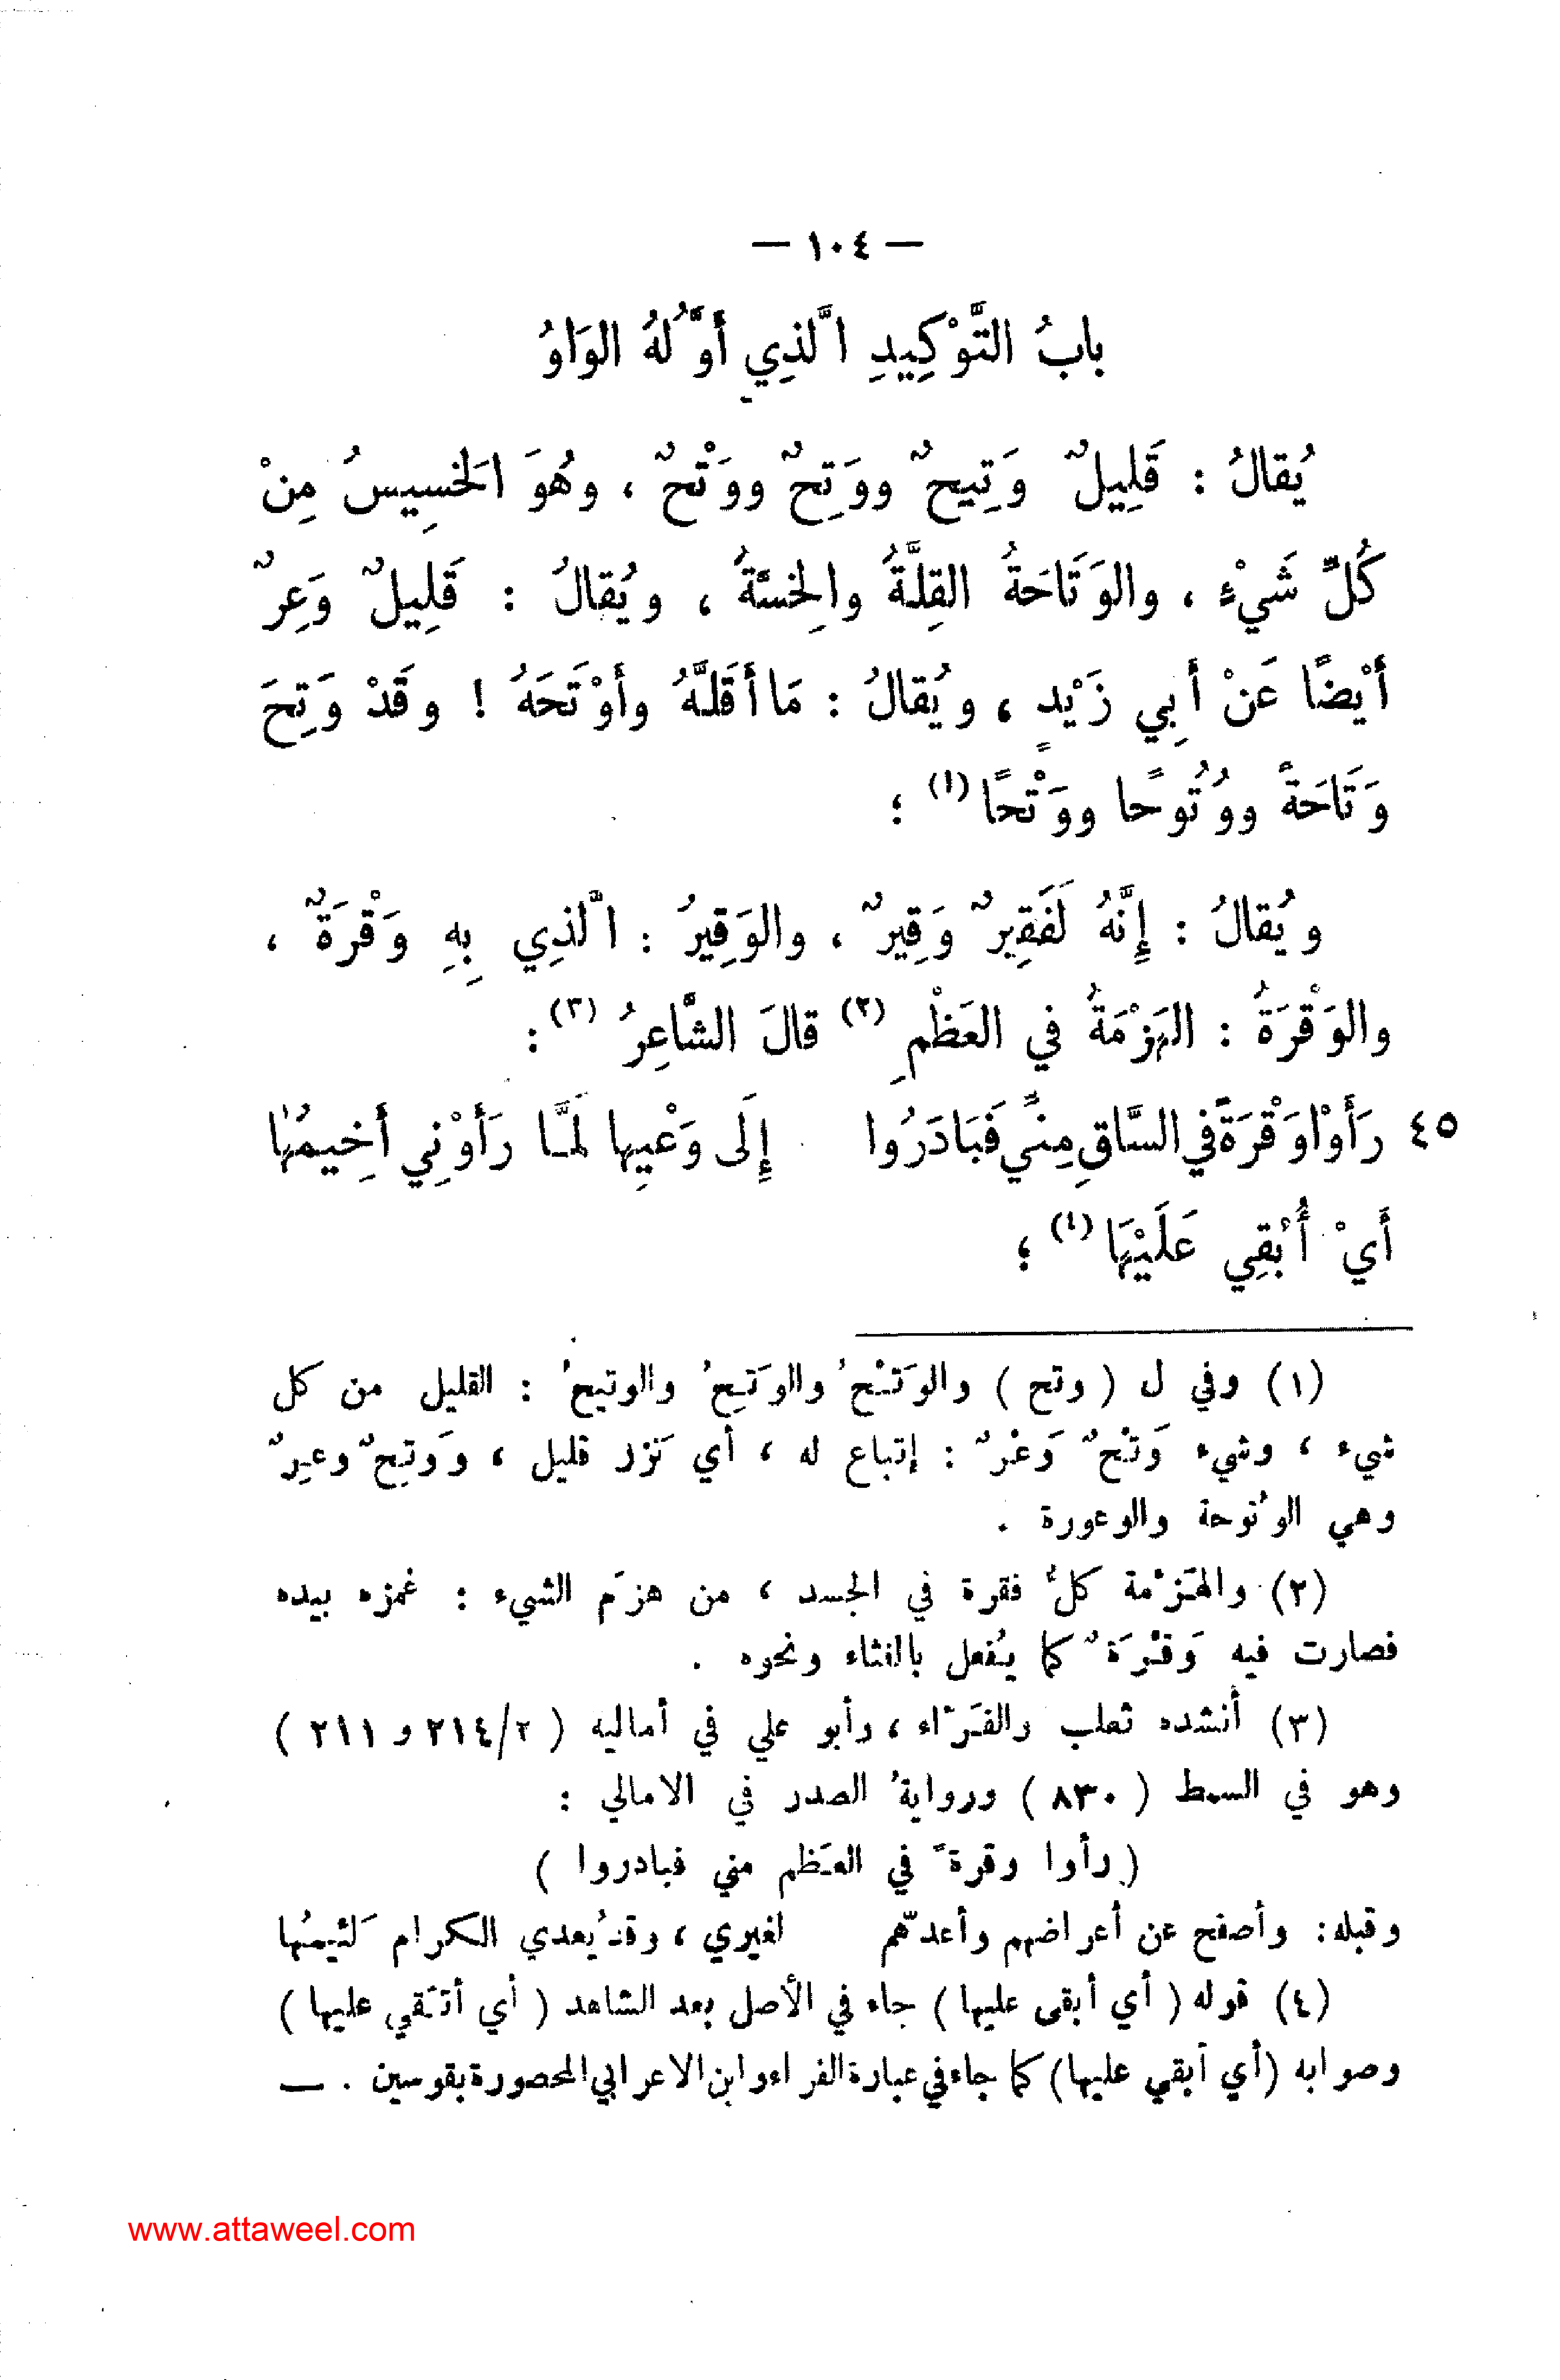 — ١٠٤ —
بابُ التَّوْكِيدِ الَّذِي أَوَّلُهُ الوَاوُ
يُقالُ : قَلِيلٌ وَتِيحٌ ووَتِحٌ ووَتْحٌ ، وهُوَ الخَسِيسُ مِنْ
كُلِّ شَيْءٍ ، والوَتَاحَةُ القِلَّةُ والخِسَّةُ ، ويُقالُ : قَلِيلٌ وَعِرٌ
أَيْضًا عَنْ أَبِي زَيْدٍ ، ويُقالُ : مَا أَقَلَّهُ وأَوْتَحَهُ ! وقَدْ وَتِحَ
وَتَاحَةً ووُتُوحًا ووَتْحًا (١) ؛
ويُقالُ : إِنَّهُ لَفَقِيرٌ وَقِيرٌ ، والوَقِيرُ : الَّذِي بِهِ وَقْرَةٌ ،
والوَقْرَةُ : الهَزْمَةُ في العَظْمِ (٢) قالَ الشَّاعِرُ (٣) :
٤٥ رَأَوْا وَقْرَةً في السَّاقِ مِنِّي فَبَادَرُوا إِلَى وَعْيِها لَمَّا رَأَوْنِي أَخِيمُها
أَيْ أُبْقِي عَلَيْهَا (٤) ؛
(١) وفي ل ( وتح ) والوَتْحُ والوَتِحُ والوتيحُ : القليل من كل
شيء ، وشيء وَتْحٌ وَعْرٌ : إتباع له ، أي نَزر قليل ، ووَتِحٌ وعِرٌ
وهي الوُتوحة والوعورة .
(٢) والهَزْمة كلُّ فقرة في الجسد ، من هزَم الشيء : غمزه بيده
فصارت فيه وَقْرَةٌ كما يُفعل بالقثاء ونحوه .
(٣) أنشده ثعلب والفَرّاء ، وأبو علي في أماليه ( ٢١٤/٢ و ٢١١ )
وهو في السمط ( ٨٣٠ ) وروايةُ الصدر في الامالي :
( رأوا وقرةً في العَظم مني فبادروا )
وقبله : وأصفح عن أعراضهم وأعدّهم لغيري ، وقد يُعدي الكرام لَئيمُها
(٤) قوله ( أي أبقى عليها ) جاء في الأصل بعد الشاهد ( أي أتَّقي عليها )
وصوابه (أي أبقي عليها) كما جاء في عبارة الفراء وابن الاعرابي المحصورة بقوسين . —
www.attaweel.com